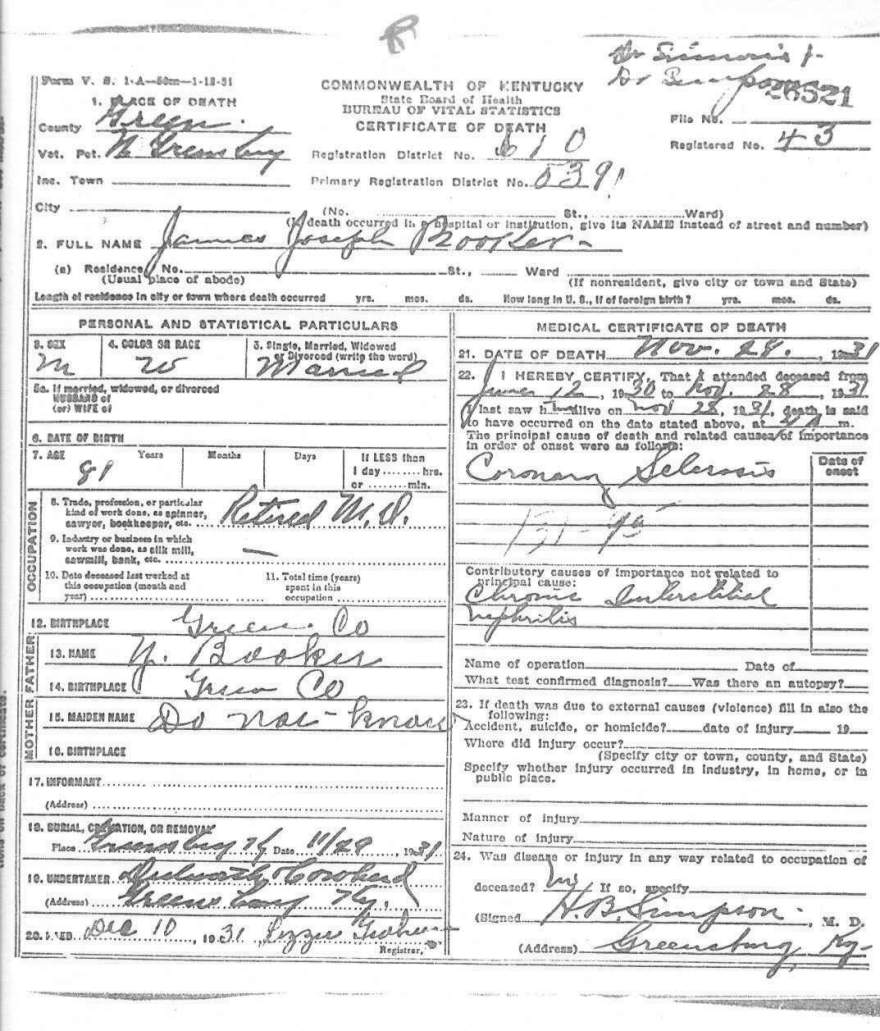 Form V. S. 1-A—50m—1-12-31
26521
COMMONWEALTH OF KENTUCKY
State Board of Health
BUREAU OF VITAL STATISTICS
CERTIFICATE OF DEATH
File No.
Registered No. 43
1. PLACE OF DEATH
County Green.
Vot. Pct. N Greensburg
Registration District No. 610
Inc. Town
Primary Registration District No.
City (No. St., Ward)
(If death occurred in a hospital or institution, give its NAME instead of street and number)
2. FULL NAME James Joseph Booker
(a) Residence, No. St., Ward
(Usual place of abode) (If nonresident, give city or town and State)
Length of residence in city or town where death occurred yrs. mos. ds. How long in U. S., if of foreign birth? yrs. mos. ds.
PERSONAL AND STATISTICAL PARTICULARS
3. SEX M
4. COLOR OR RACE W
5. Single, Married, Widowed
or Divorced (write the word)
Married
5a. If married, widowed, or divorced
HUSBAND of
(or) WIFE of
6. DATE OF BIRTH
7. AGE Years Months Days If LESS than
1 day ........ hrs.
or ........ min.
81
OCCUPATION
8. Trade, profession, or particular
kind of work done, as spinner,
sawyer, bookkeeper, etc. Retired M.D.
9. Industry or business in which
work was done, as silk mill,
sawmill, bank, etc. —
10. Date deceased last worked at
this occupation (month and
year)
11. Total time (years)
spent in this
occupation
12. BIRTHPLACE Green Co
FATHER
13. NAME Y. Booker
14. BIRTHPLACE Green Co
MOTHER
15. MAIDEN NAME Do not know
16. BIRTHPLACE
17. INFORMANT
(Address)
18. BURIAL, CREMATION, OR REMOVAL
Place Greensburg Ky Date 11/29, 1931
19. UNDERTAKER & Cowherd
(Address) Greensburg Ky.
20. FILED Dec 10, 1931 Lizzie Graham
Registrar.
MEDICAL CERTIFICATE OF DEATH
21. DATE OF DEATH Nov. 28., 1931
22. I HEREBY CERTIFY, That I attended deceased from
June 12, 1930 to Nov. 28, 1931
I last saw him alive on Nov 28, 1931, death is said
to have occurred on the date stated above, at m.
The principal cause of death and related causes of importance
in order of onset were as follows:
Date of
onset
Coronary Sclerosis
Contributory causes of importance not related to
principal cause:
Chronic Interstitial
nephritis
Name of operation Date of
What test confirmed diagnosis? Was there an autopsy?
23. If death was due to external causes (violence) fill in also the
following:
Accident, suicide, or homicide? date of injury 19
Where did injury occur?
(Specify city or town, county, and State)
Specify whether injury occurred in industry, in home, or in
public place.
Manner of injury
Nature of injury
24. Was disease or injury in any way related to occupation of
deceased? No If so, specify
(Signed H.B. Simpson, M. D.
(Address) Greensburg Ky-